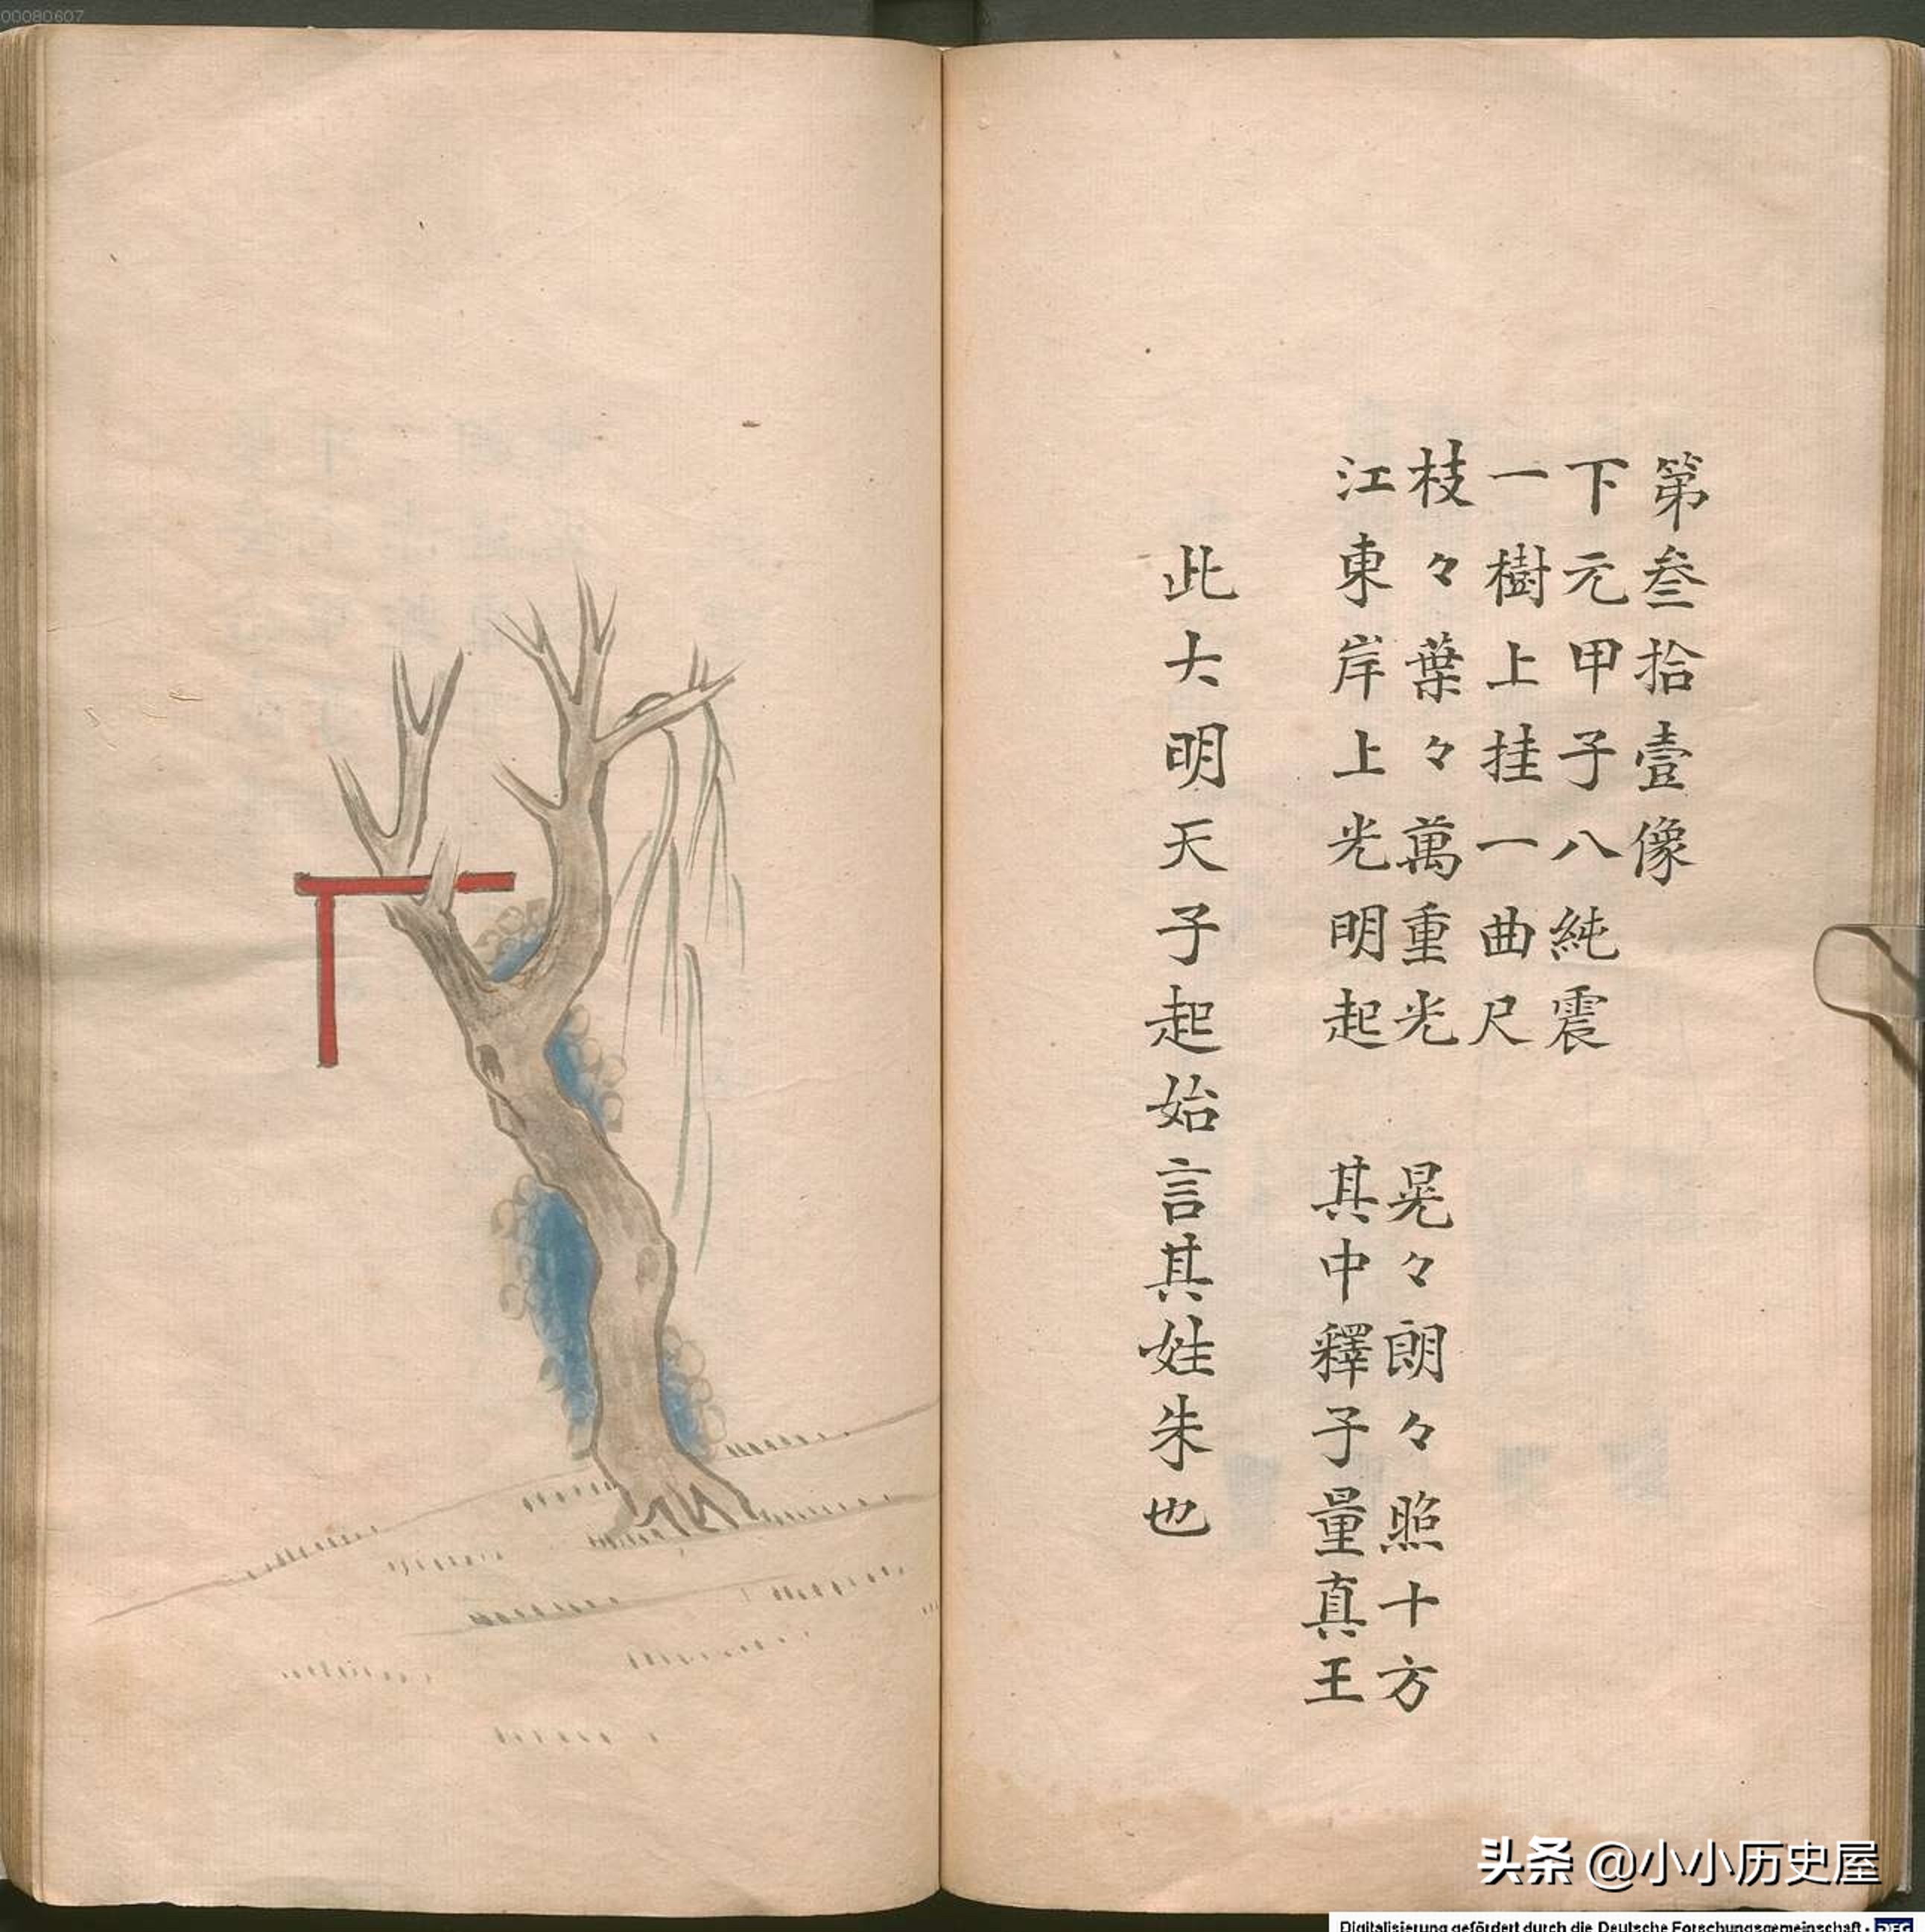 00080607
第叁拾壹像
下元甲子八純震
一樹上挂一曲尺
枝々葉々萬重光 晃々朗々照十方
江東岸上光明起 其中釋子量真王
此大明天子起始言其姓朱也
头条 @小小历史屋
Digitalisierung gefördert durch die Deutsche Forschungsgemeinschaft - DFG